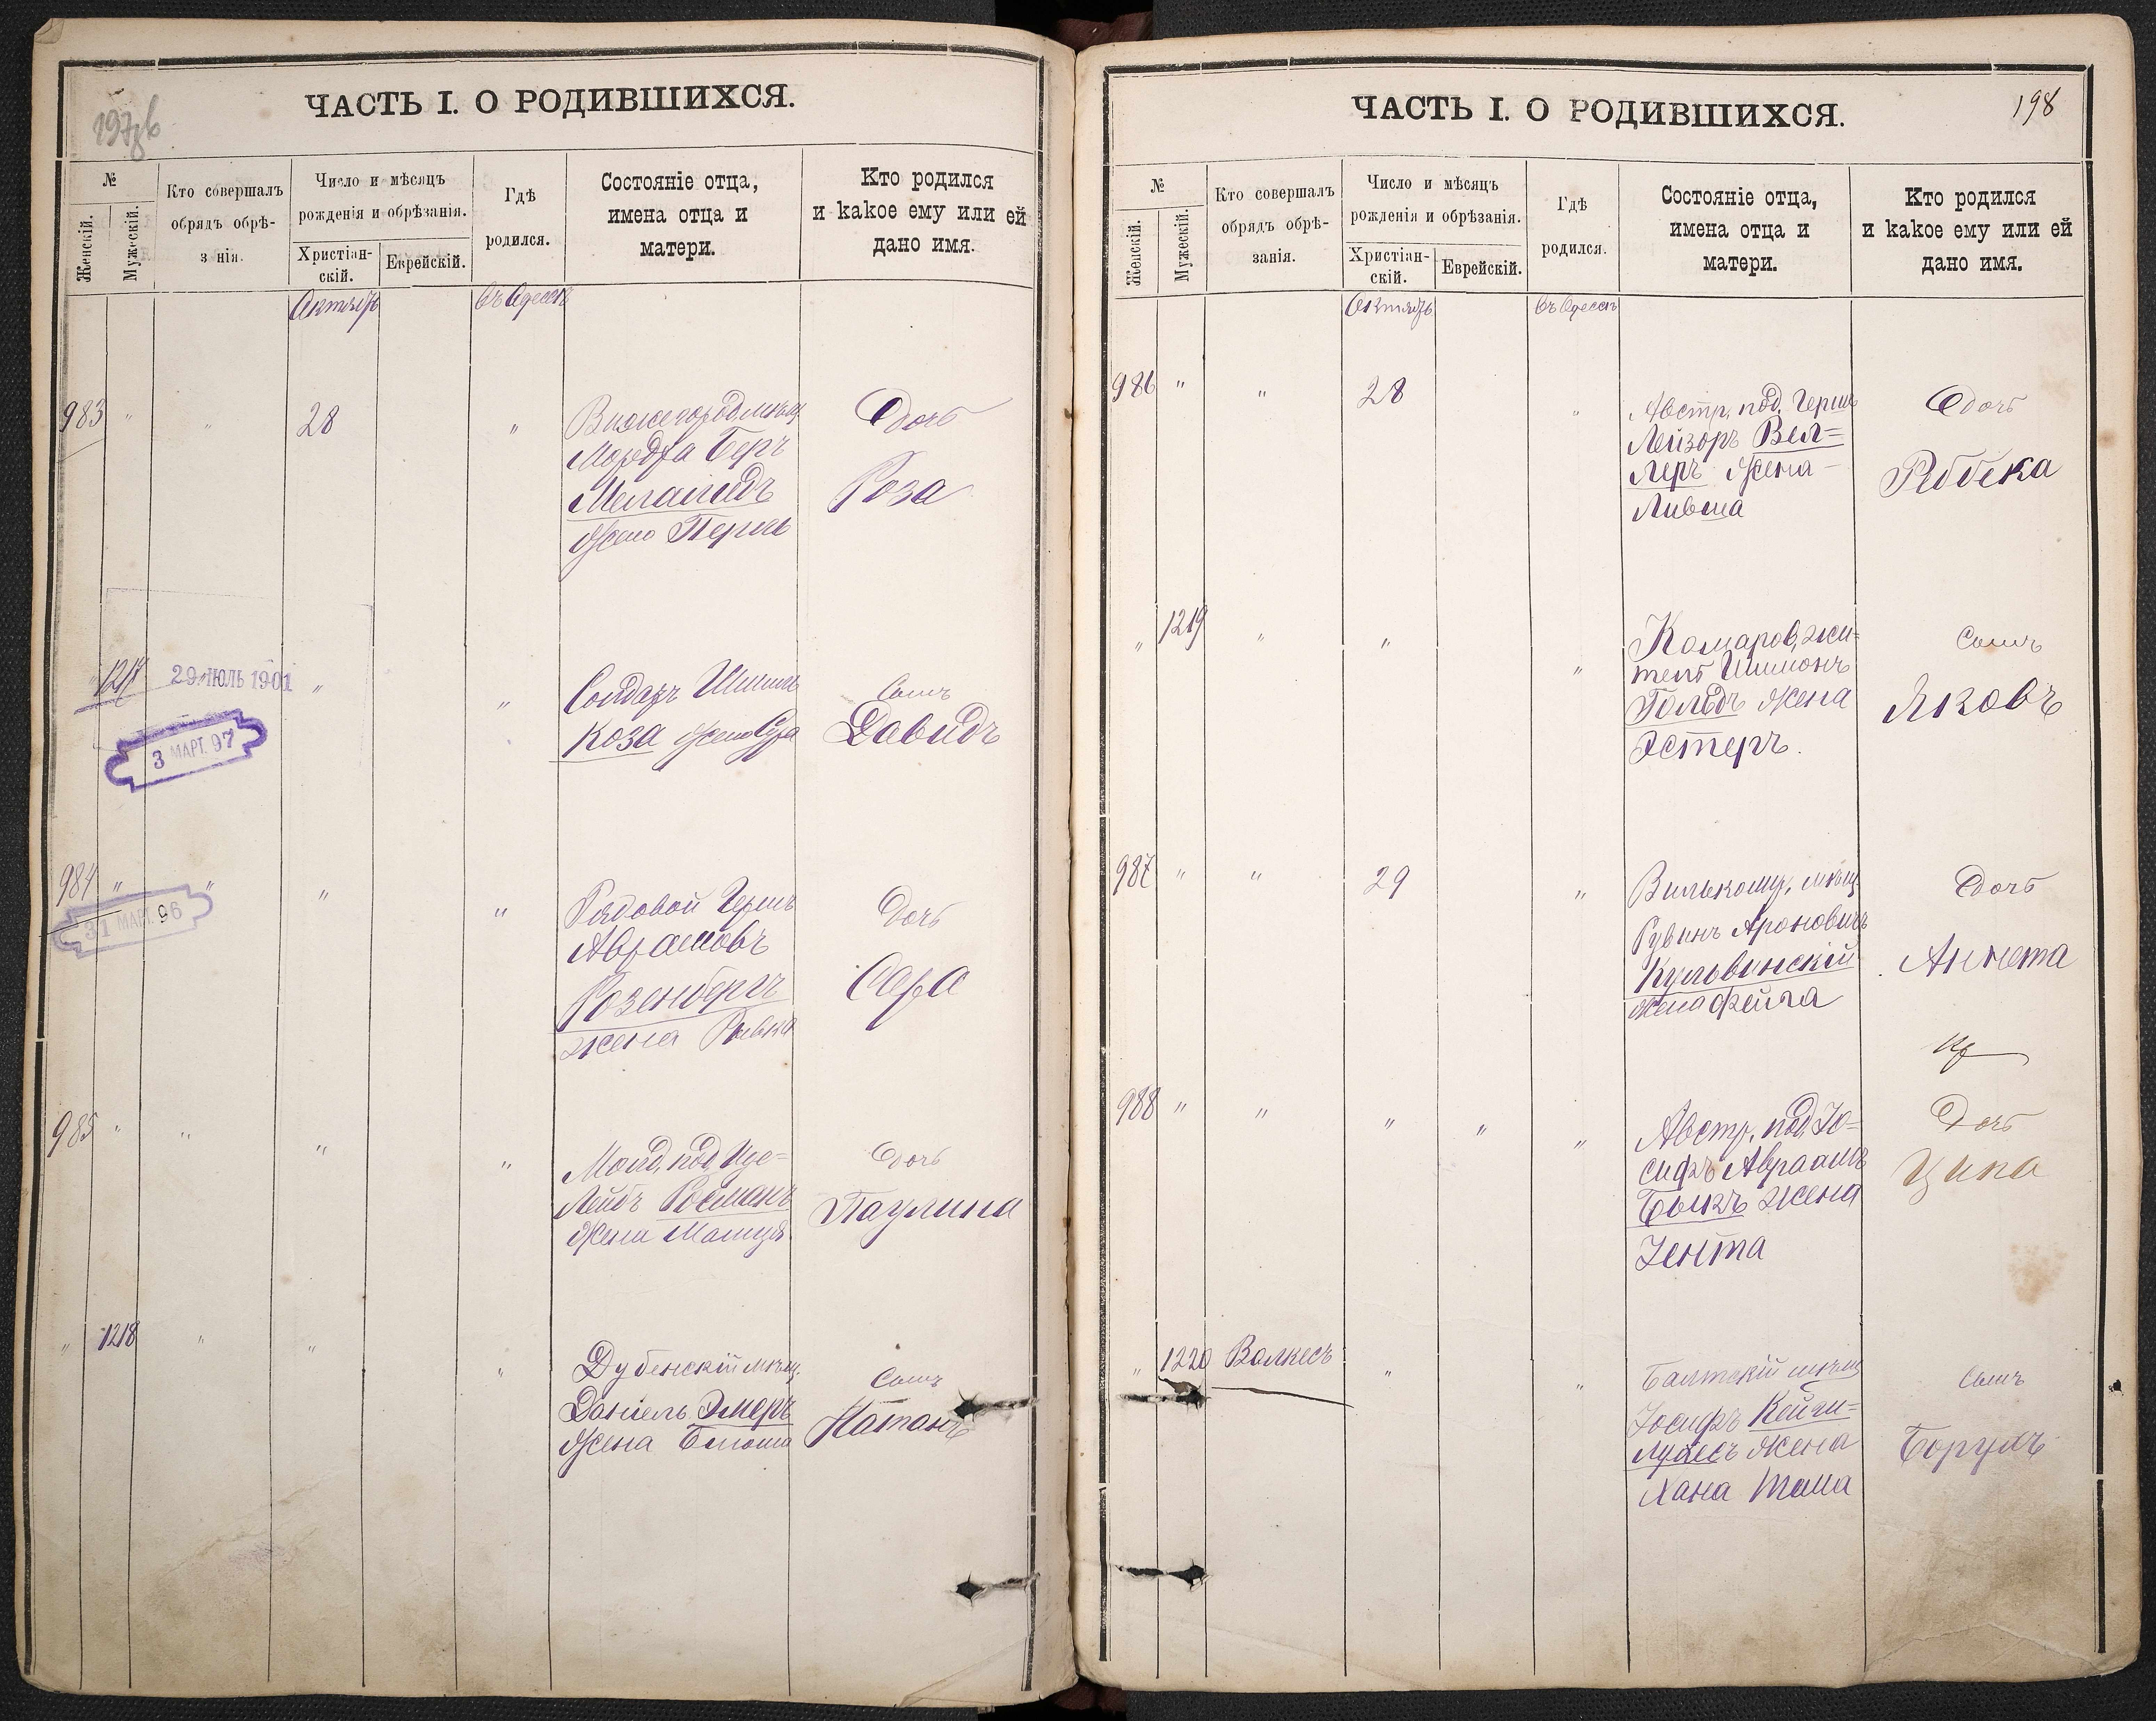 197об
ЧАСТЬ I. О РОДИВШИХСЯ.
№
Женскій.
Мужескій.
Кто совершалъ
обрядъ обрѣ-
з нія.
Число и мѣсяцъ
рожденія и обрѣзанія.
Христіан-
скій.
Еврейскій.
Гдѣ
родился.
Состояніе отца,
имена отца и
матери.
Кто родился
и какое ему или ей
дано имя.
Октябрь
Въ Одессѣ
983 " " 28 "
Мордха Беръ
Меламедъ
Жена Перль
Дочь
Роза
" 1217 29 ІЮЛЬ 1901 " "
3 МАРТ. 97
Солдатъ
Коза Жена Сура
Сынъ
Давидъ
984 " " " "
31 МАРТ. 96
Рядовой Гершъ
Абрамовъ
Розенбергъ
жена Ривка
Дочь
Сара
985 " " " "
Молд. под. Иде=
Лейбъ Росманъ
Жена
Дочь
Паулина
" 1218 " " "
Дубенскій мѣщ.
Даніель Эмеръ
Жена
Сынъ
Натанъ
ЧАСТЬ I. О РОДИВШИХСЯ.
198
№
Женскій.
Мужескій.
Кто совершалъ
обрядъ обрѣ-
занія.
Число и мѣсяцъ
рожденія и обрѣзанія.
Христіан-
скій.
Еврейскій.
Гдѣ
родился.
Состояніе отца,
имена отца и
матери.
Кто родился
и какое ему или ей
дано имя.
Октябрь
Въ Одессѣ
986 " " 28 "
Австр. под. Гершъ
Лейзоръ Вел=
леръ Жена
Лившa
Дочь
Ребека
" 1219 " " "
Комаров. жи=
тель Шимонъ
Гольдъ Жена
Эстеръ.
Сынъ
Яковъ
987 " " 29 "
Вилькоми, мѣщ.
Рувинъ Ароновичъ
Кульвинскій
Жена Фейга
Дочь
Аннета
988 " " " " "
Австр. под. Іо=
сифъ Авраамъ
Быкъ жена
Зента
Дочь
Ципа
" 1220 Волкесъ " "
Балтскій мѣщ
Іосифъ Кейги=
Жена
Хана Тоша
Сынъ
Борухъ